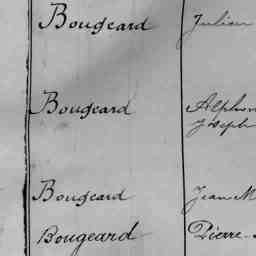 Bougeard Julien
Bougeard Alphon
Joseph
Bougeard Jean M
Bougeard Pierre-